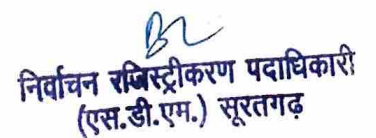 निर्वाचन रजिस्ट्रीकरण पदाधिकारी
(एस.डी.एम.) सूरतगढ़